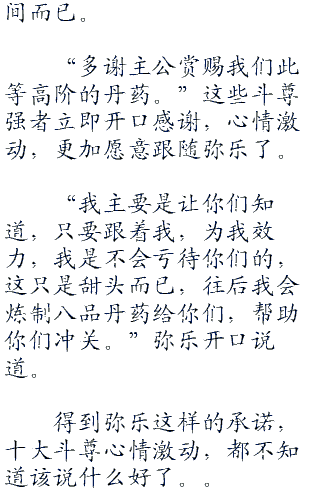 间而已。
“多谢主公赏赐我们此
等高阶的丹药。”这些斗尊
强者立即开口感谢，心情激
动，更加愿意跟随弥乐了。
“我主要是让你们知
道，只要跟着我，为我效
力，我是不会亏待你们的，
这只是甜头而已，往后我会
炼制八品丹药给你们，帮助
你们冲关。”弥乐开口说
道。
得到弥乐这样的承诺，
十大斗尊心情激动，都不知
道该说什么好了。。